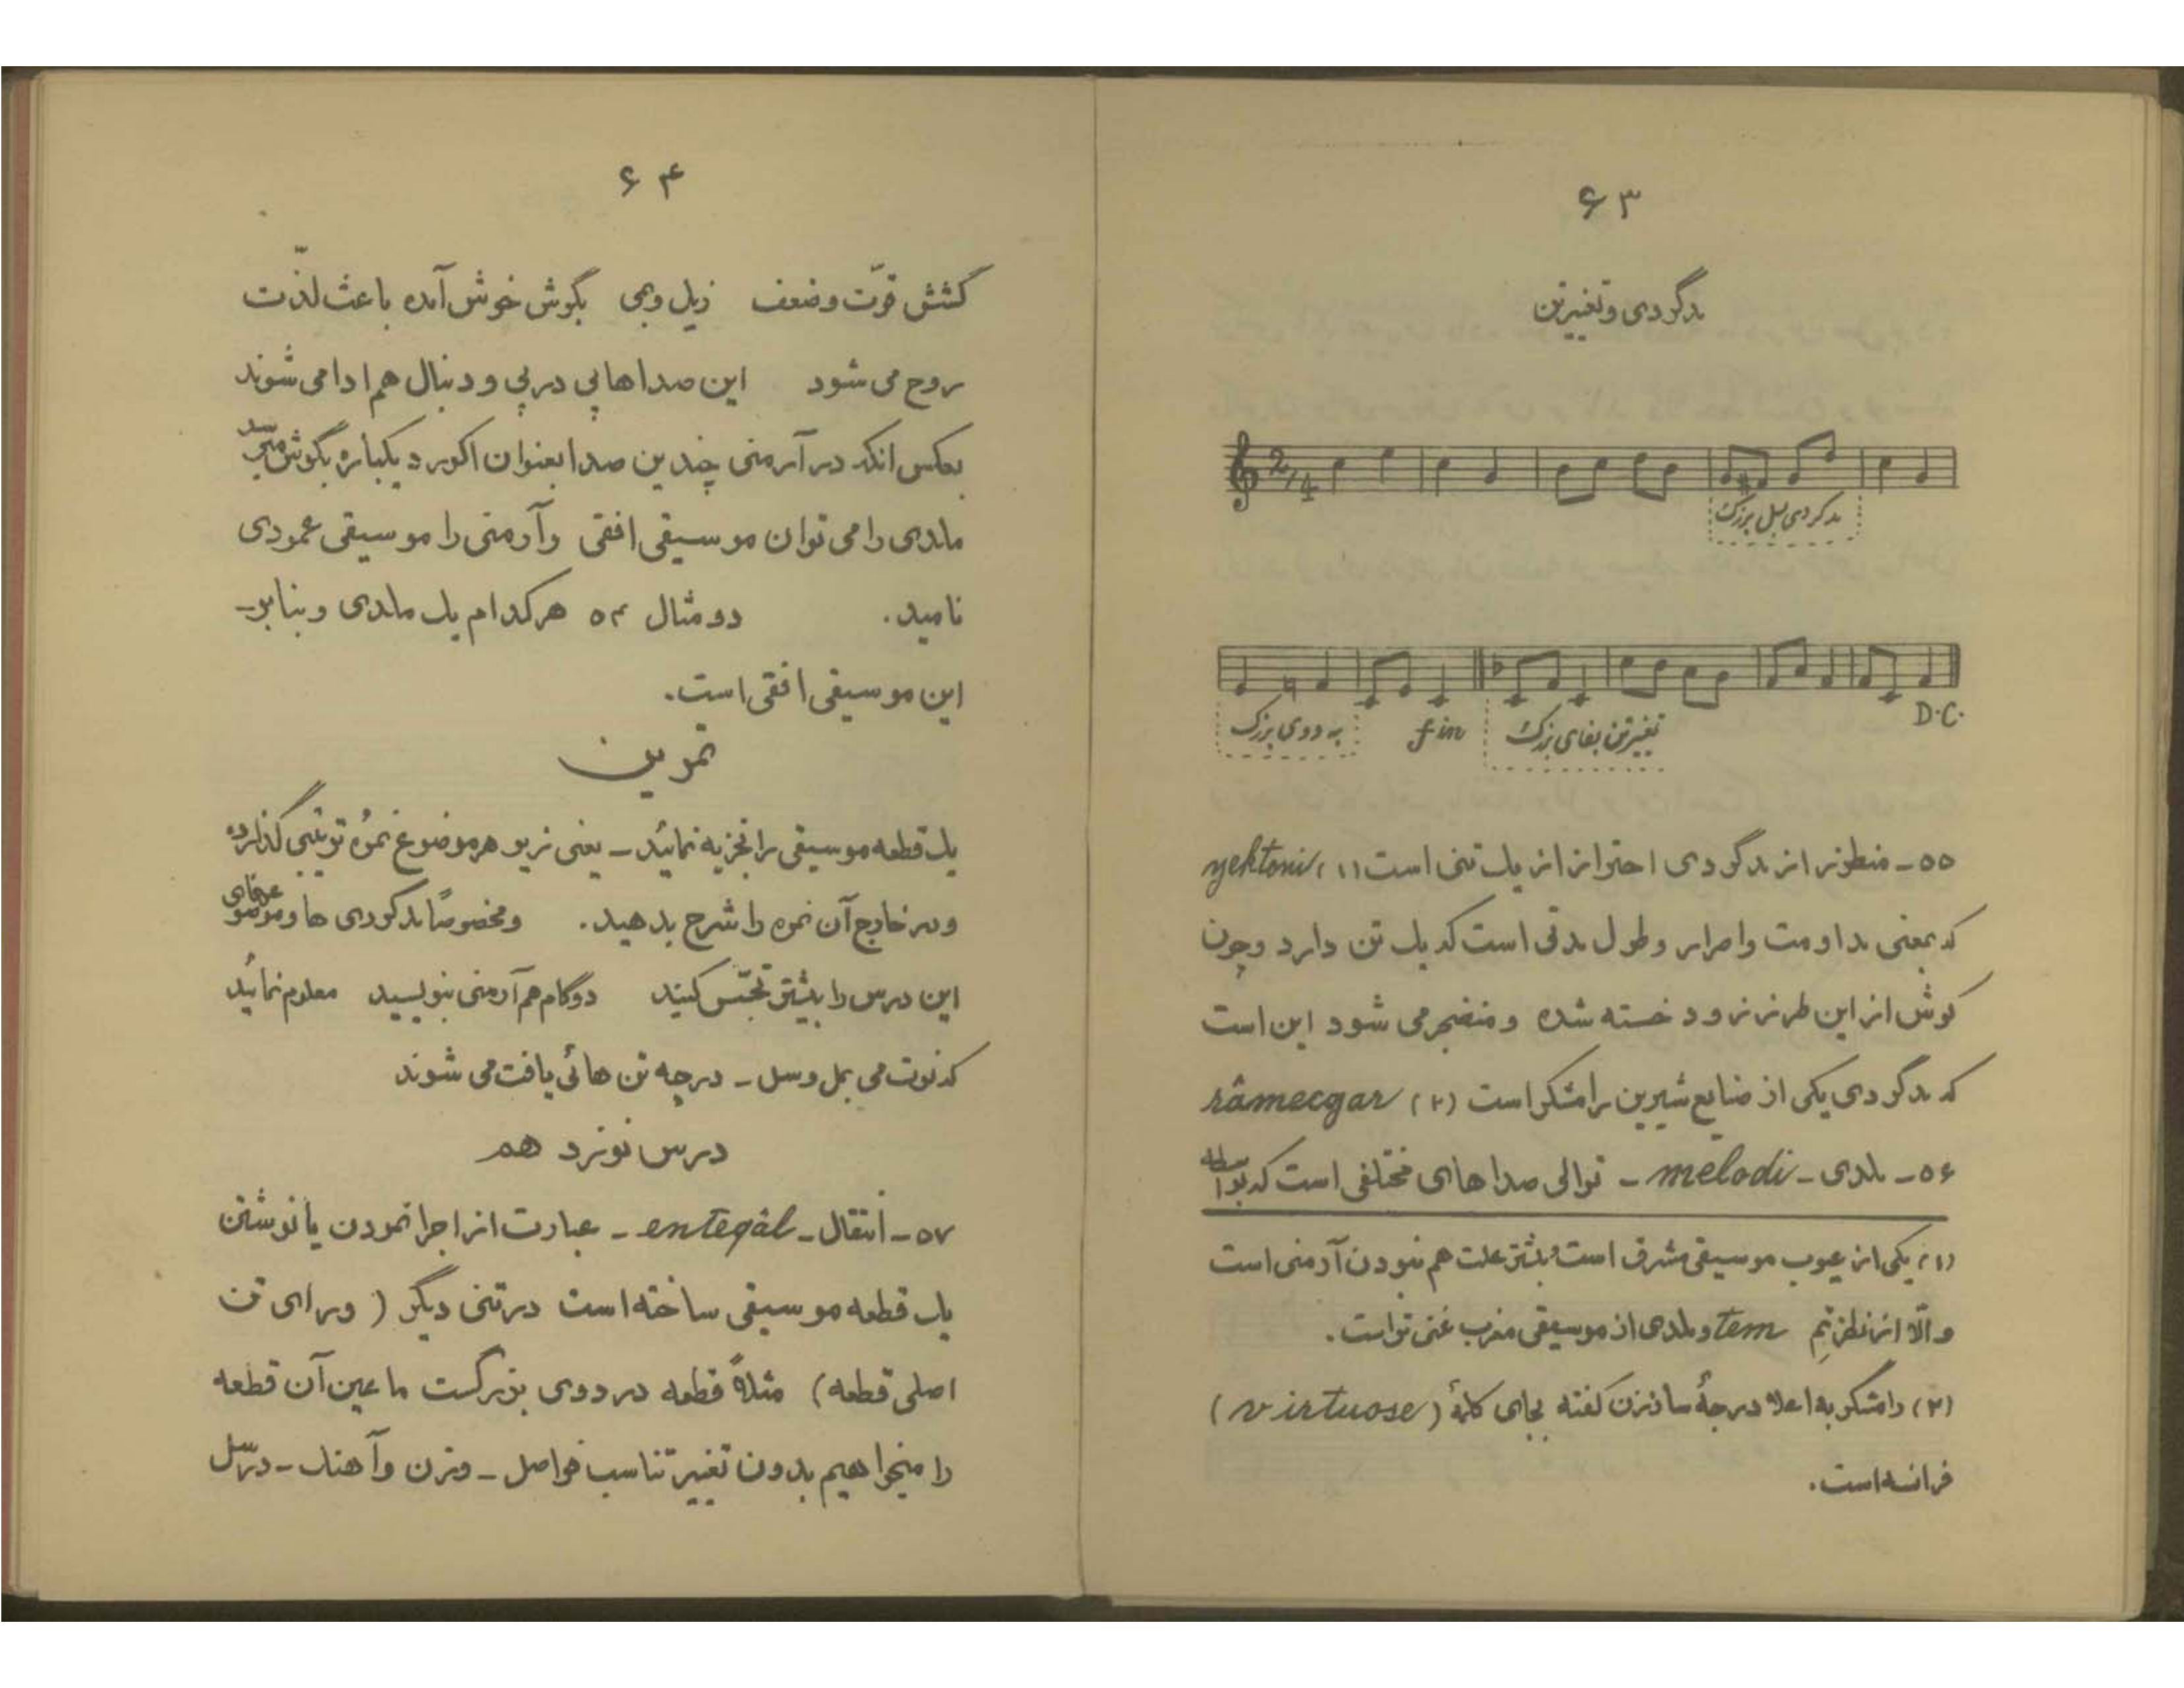 ۶۳
مدگردی و تغییر تن
2/4
مدگردی بسل بزرگ
به دوی بزرگ
fin
تغییر تن بفای بزرگ
D.C.
۵۵ـ منظور از مدگردی احتراز از یک تنی است (۱) yektoni
که بمعنی مداومت و اصرار و طول مدتی است که یک تن دارد و چون
گوش از این طرز زود خسته شده و منضجر می شود این است
که مدگردی یکی از صنایع شیرین رامشگر است (۲) râmecgar
۵۶ـ ملدی ـ melodi ـ توالی صداهای مختلفی است که بواسطه
(۱) یکی از عیوب موسیقی مشرق است و بیشتر علت هم نبودن آرمنی است
و الّا از نظر تِم tem و ملدی از موسیقی مغرب غنی تر است.
(۲) رامشگر به اعلا درجهٔ ساززن گفته بجای کلمهٔ (virtuose)
فرانسه است.
۶۴
کشش قوّت و ضعف زیل و بمی بگوش خوش آمده باعث لذّت
روح می شود این صداها پی در پی و دنبال هم ادا می شوند
بعکس انکه در آرمنی چندین صدا بعنوان اکورد یکباره بگوش میرسد
ملدی را می توان موسیقی افقی و آرمنی را موسیقی عمودی
نامید. دو مثال ۵۴ هر کدام یک ملدی و بنابر ـ
این موسیقی افقی است.
تمرین
یک قطعه موسیقی را تجزیه نمائید ـ یعنی زیر هر موضوع نمره توتیبی گذارده
و در خارج آن نمره را شرح بدهید. و مخصوصاً مدگردی ها و موضوعهای
این درس را بیشتر تجسّس کنید دو گام هم آرمنی بنویسید معلوم نمائید
که نوت می بمل و سل ـ در چه تن هائی یافت می شوند
درس نوزدهم
۵۷ـ انتقال ـ enteqâl ـ عبارت از اجرا نمودن یا نوشتن
یک قطعه موسیقی ساخته است در تنی دیگر ( ورای تن
اصلی قطعه) مثلاً قطعه در دوی بزرگست ما عین آن قطعه
را میخواهیم بدون تغییر تناسب فواصل ـ وزن و آهنک ـ در سل